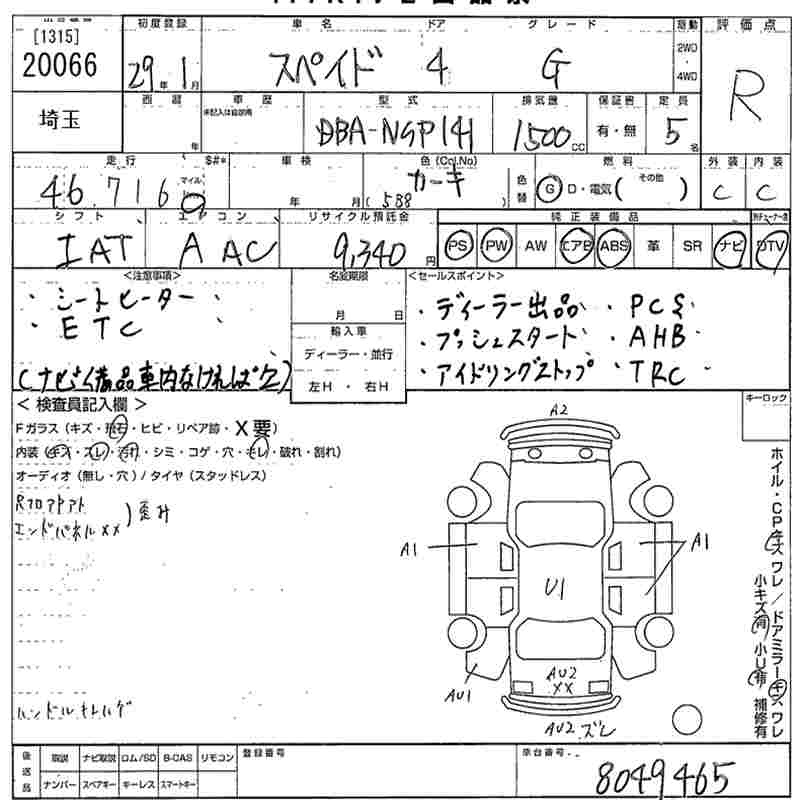 [1315]
20066
初度登録
29年1月
車名 ドア グレード
スペイド 4 G
駆動
2WD
・
4WD
評価点
R
埼玉
西暦
年
車歴
型式
DBA-NSP141
排気量
1500CC
保証書
有・無
定員
5名
走行
46,716
マイル
S#*
車検
年 月
色(Col.No)
カーキ
(588 )
色替
燃料
G D・電気( その他 )
外装
C
内装
C
シフト
IAT
エアコン
A AC
リサイクル預託金
9,340円
純正装備品
PS PW AW エアB ABS 革 SR ナビ DTV
<注意事項>
・シートヒーター
・ETC
名変期限
月 日
輸入車
ディーラー・並行
左H・右H
<セールスポイント>
・ディーラー出品 ・PCS
・プッシュスタート ・AHB
・アイドリングストップ ・TRC
<検査員記入欄>
Fガラス(キズ・飛石・ヒビ・リペア跡・X要)
内装(キズ・スレ・汚れ・シミ・コゲ・穴・モレ・破れ・割れ)
オーディオ(無し・穴)/タイヤ(スタッドレス)
Rフロアトアト
エンドパネルXX
歪み
キーロック
A2
A1
A1
U1
AU1
AU2
XX
AU2 ズレ
ホイル・CPキズ ワレ/ドアミラーキズ ワレ
小キズ有 小U有 補修有
後送品
取説 ナビ取説 ロム/SD B-CAS リモコン
ナンバー スペアキー キーレス スマートキー
登録番号
車台番号
8049465